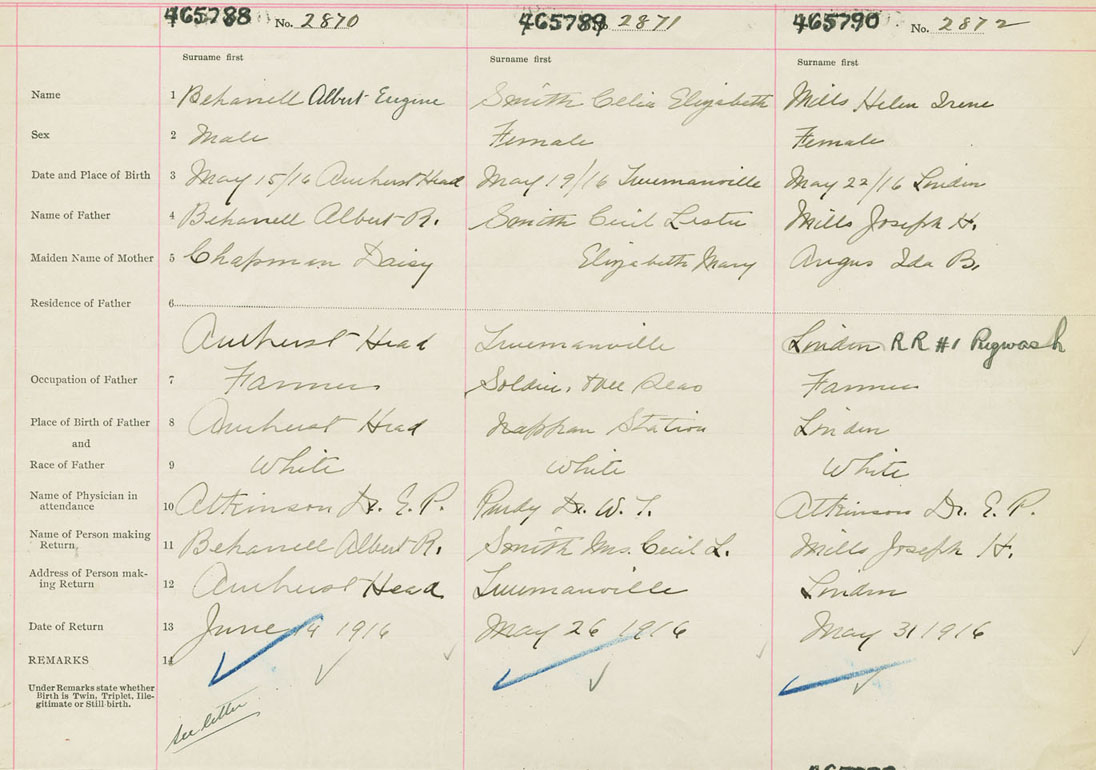 465788 No. 2870 465789 No. 2871 465790 No. 2872
Surname first Surname first Surname first
Name 1 Behanell Albert Eugine Smith Celia Elizabeth Mills Helen Irene
Sex 2 Male Female Female
Date and Place of Birth 3 May 15/16 Amherst Head May 19/16 Truemanville May 22/16 Linden
Name of Father 4 Behanell Albert R. Smith Cecil Lester Mills Joseph H.
Maiden Name of Mother 5 Chapman Daisy Elizabeth Mary Angus Ida B.
Residence of Father 6
Amherst Head Truemanville Linden RR #1 Pugwash
Occupation of Father 7 Farmer Soldier, Farmer
Place of Birth of Father 8 Amherst Head Nappan Station Linden
and
Race of Father 9 White White White
Name of Physician in
attendance 10 Atkinson Dr. E. P. Purdy Dr. W. T. Atkinson Dr. E. P.
Name of Person making
Return 11 Behanell Albert R. Smith Mrs. Cecil L. Mills Joseph H.
Address of Person mak-
ing Return 12 Amherst Head Truemanville Linden
Date of Return 13 June 14 1916 May 26 1916 May 31 1916
REMARKS 14
Under Remarks state whether
Birth is Twin, Triplet, Ille-
gitimate or Still-birth.
see letter